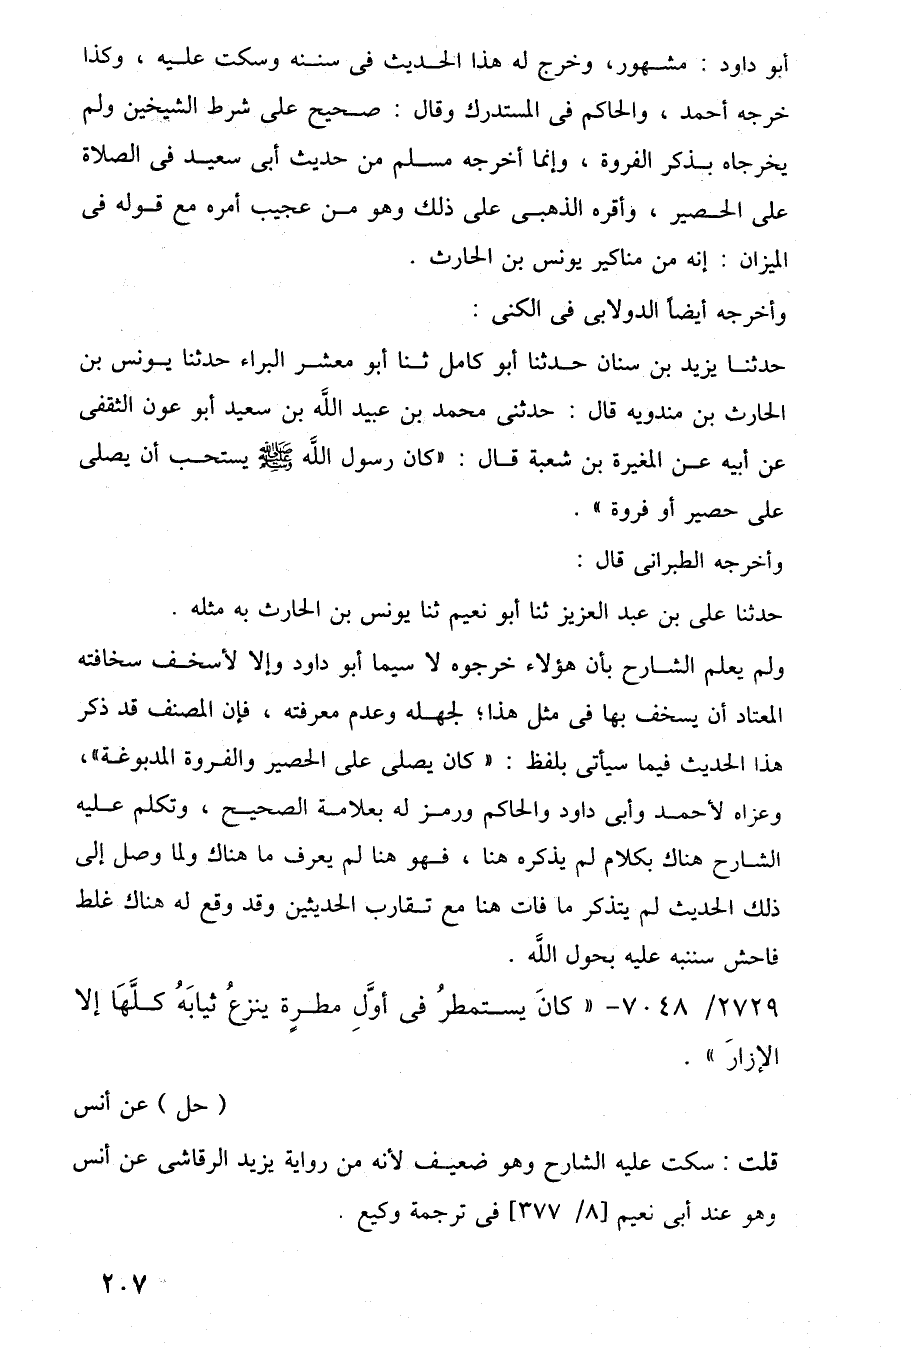 أبو داود : مشهور، وخرج له هذا الحديث فى سننه وسكت عليه ، وكذا
خرجه أحمد ، والحاكم فى المستدرك وقال : صحيح على شرط الشيخين ولم
يخرجاه بذكر الفروة ، وإنما أخرجه مسلم من حديث أبى سعيد فى الصلاة
على الحصير ، وأقره الذهبى على ذلك وهو من عجيب أمره مع قوله فى
الميزان : إنه من مناكير يونس بن الحارث .
وأخرجه أيضاً الدولابى فى الكنى :
حدثنا يزيد بن سنان حدثنا أبو كامل ثنا أبو معشر البراء حدثنا يونس بن
الحارث بن مندويه قال : حدثنى محمد بن عبيد اللَّه بن سعيد أبو عون الثقفى
عن أبيه عن المغيرة بن شعبة قال : «كان رسول اللَّه ﷺ يستحب أن يصلى
على حصير أو فروة » .
وأخرجه الطبرانى قال :
حدثنا على بن عبد العزيز ثنا أبو نعيم ثنا يونس بن الحارث به مثله .
ولم يعلم الشارح بأن هؤلاء خرجوه لا سيما أبو داود وإلا لأسخف سخافته
المعتاد أن يسخف بها فى مثل هذا؛ لجهله وعدم معرفته ، فإن المصنف قد ذكر
هذا الحديث فيما سيأتى بلفظ : « كان يصلى على الحصير والفروة المدبوغة»،
وعزاه لأحمد وأبى داود والحاكم ورمز له بعلامة الصحيح ، وتكلم عليه
الشارح هناك بكلام لم يذكره هنا ، فهو هنا لم يعرف ما هناك ولما وصل إلى
ذلك الحديث لم يتذكر ما فات هنا مع تقارب الحديثين وقد وقع له هناك غلط
فاحش سننبه عليه بحول اللَّه .
٢٧٢٩/ ٧٠٤٨- « كانَ يستمطرُ فى أوَّلِ مطرةٍ ينزعُ ثيابَهُ كلَّهَا إلا
الإزارَ » .
( حل ) عن أنس
قلت : سكت عليه الشارح وهو ضعيف لأنه من رواية يزيد الرقاشى عن أنس
وهو عند أبى نعيم [٨/ ٣٧٧] فى ترجمة وكيع .
٢٠٧